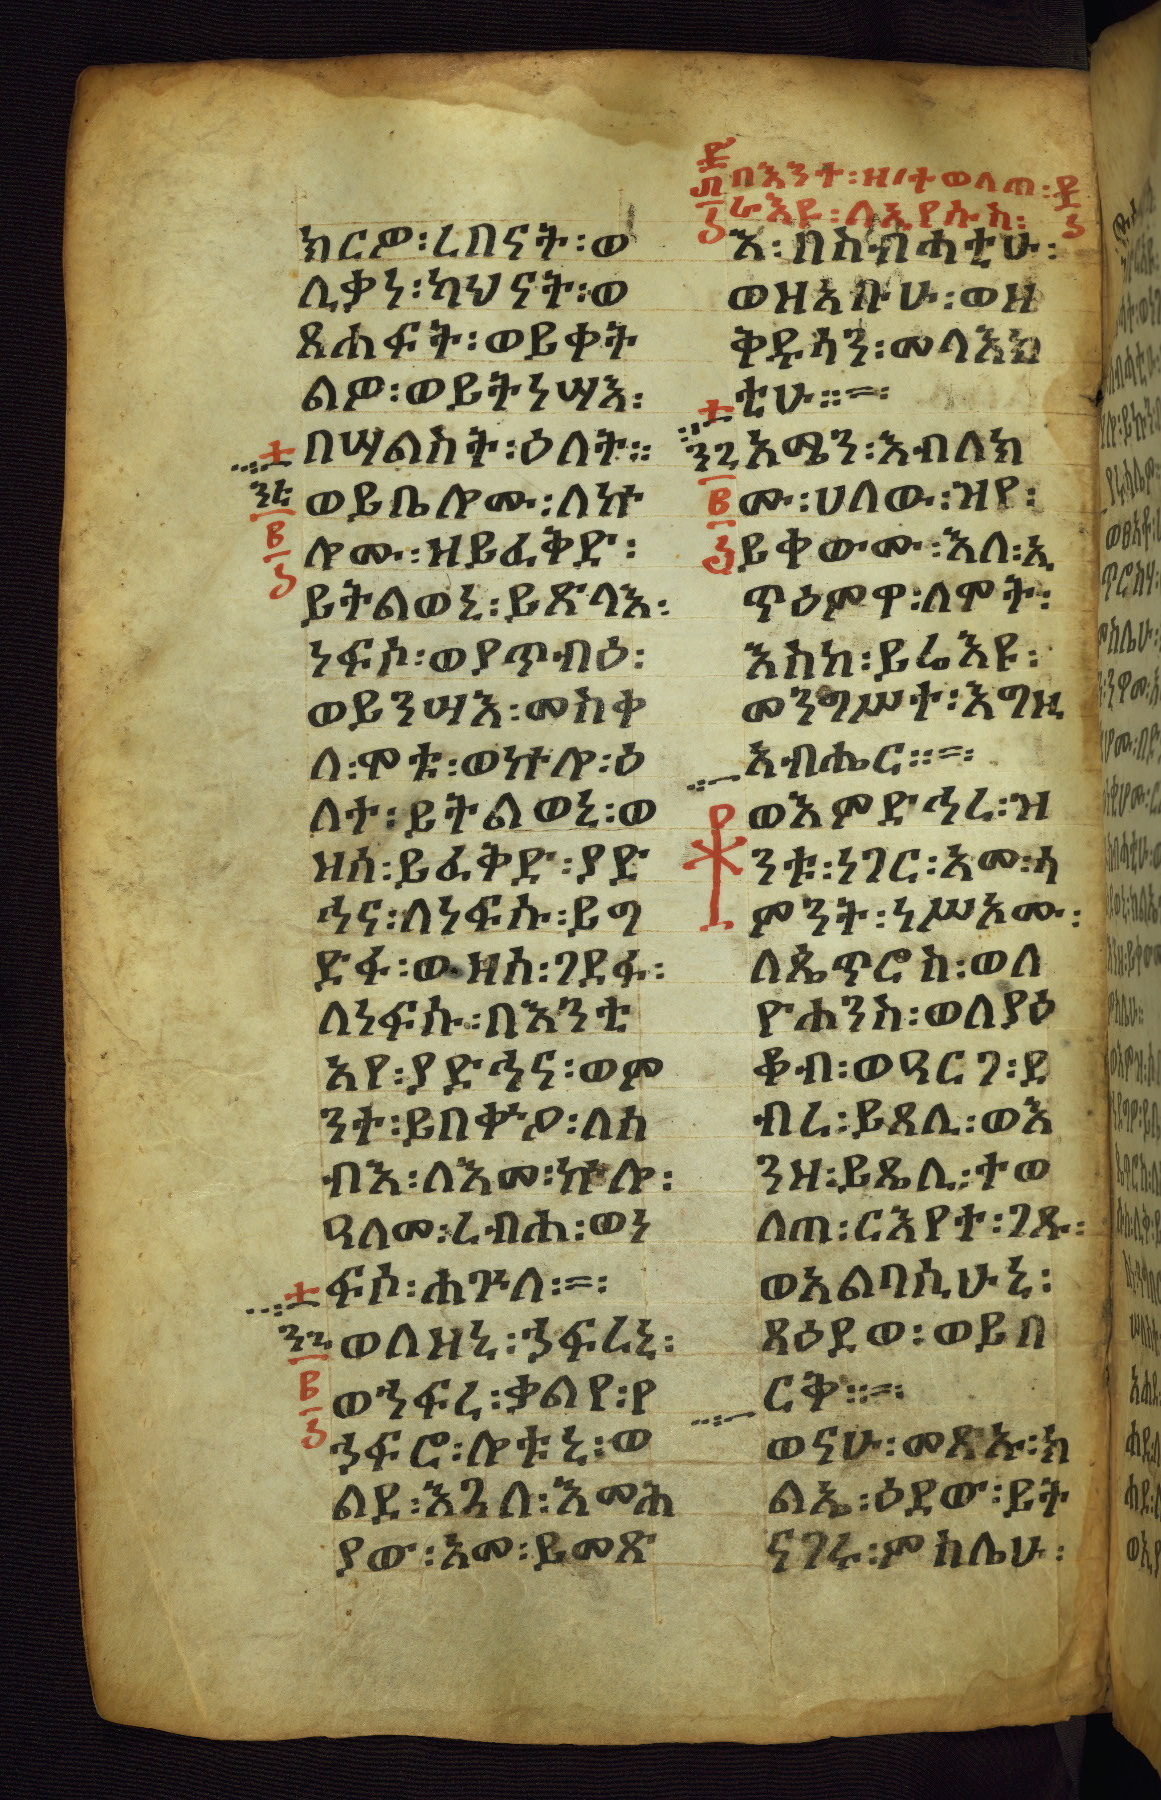 ክርዎ፡ረበናት፡ወ
ሊቃነ፡ካህናት፡ወ
ጸሐፍት፡ወይቀት
ልዎ፡ወይትነሣእ፡
በሣልስት፡ዕለት።
ወይቤሎሙ፡ለኵ
ሎሙ፡ዘይፈቅድ፡
ይትልወኒ፡ይጽላእ፡
ነፍሶ፡ወያጥብዕ፡
ወይንሣእ፡መስቀ
ለ፡ሞቱ፡ወኵሎ፡ዕ
ለተ፡ይትልወኒ፡ወ
ዝሰ፡ይፈቅድ፡ያድ
ኅና፡ለነፍሱ፡ይግ
ድፋ፡ወዘሰ፡ገደፋ፡
ለነፍሱ፡በእንቲ
አየ፡ያድኅና፡ወም
ንተ፡ይበቍዖ፡ለሰ
ብእ፡ለእመ፡ኵሎ፡
ዓለመ፡ረብሐ፡ወነ
ፍሶ፡ሐጕለ፡=፡
ወለዘኒ፡ኀፍረኒ፡
ወኀፍረ፡ቃልየ፡የ
ኀፍሮ፡ሎቱኒ፡ወ
ልደ፡እጓለ፡እመሕ
ያው፡አመ፡ይመጽ
በእንተ፡ዘተወለጠ፡
ራእዩ፡ለኢየሱስ፡
እ፡በስብሓቲሁ፡
ወዘአቡሁ፡ወዘ
ቅዱሳን፡መላእክ
ቲሁ።=፡
አሜን፡እብለክ
ሙ፡ሀለው፡ዝየ፡
ይቀውሙ፡እለ፡ኢ
ጥዕምዋ፡ለሞት፡
እስከ፡ይሬእዩ፡
መንግሥተ፡እግዚ
አብሔር።=፡
ወእምድኅረ፡ዝ
ንቱ፡ነገር፡አመ፡ሳ
ምንት፡ነሥአሙ፡
ለጴጥሮስ፡ወለ
ዮሐንስ፡ወለያዕ
ቆብ፡ወዓርገ፡ደ
ብረ፡ይጸሊ፡ወእ
ንዘ፡ይጼሊ፡ተወ
ለጠ፡ርእየተ፡ገጹ፡
ወአልባሲሁኒ፡
ጸዕደወ፡ወይበ
ርቅ።=፡
ወናሁ፡መጽኡ፡ክ
ልኤ፡ዕደው፡ይት
ናገሩ፡ምስሌሁ፡